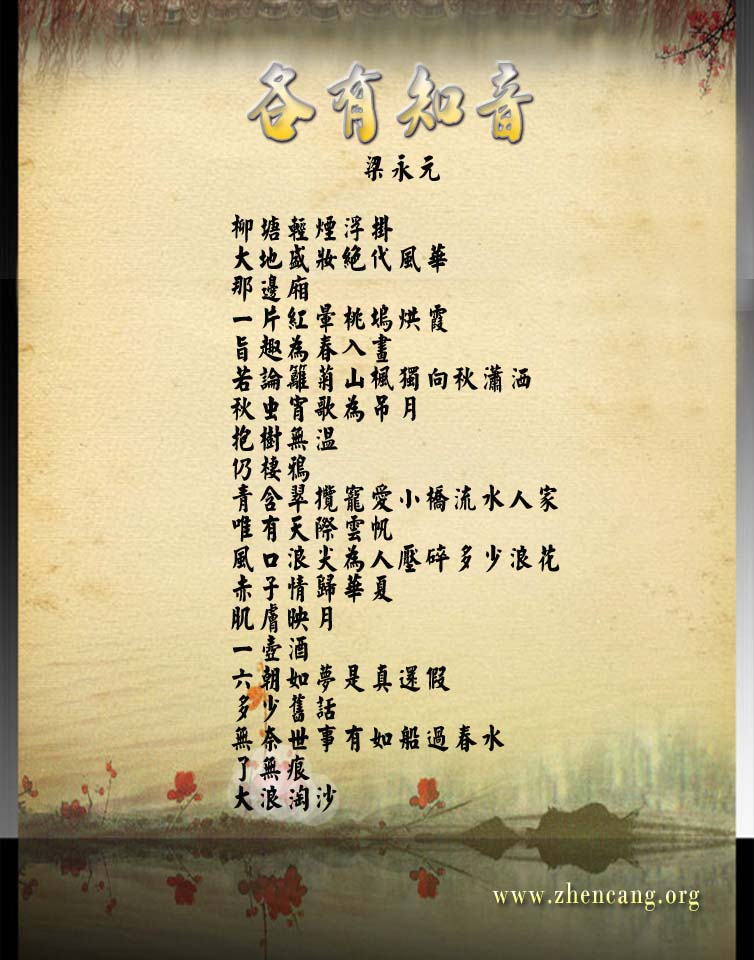 各有知音
梁永元
柳塘輕煙浮掛
大地盛妝絕代風華
那邊廂
一片紅暈桃塢烘霞
旨趣為春入畫
若論籬菊山楓獨向秋瀟洒
秋虫宵歌為吊月
抱樹無溫
仍棲鴉
青含翠攬寵愛小橋流水人家
唯有天際雲帆
風口浪尖為人壓碎多少浪花
赤子情歸華夏
肌膚映月
一壺酒
六朝如夢是真還假
多少舊話
無奈世事有如船過春水
了無痕
大浪淘沙
www.zhencang.org